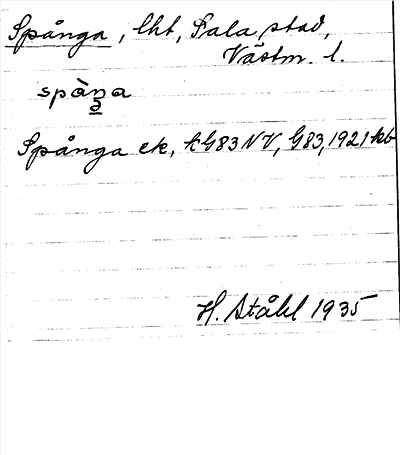 Spånga, lht, Sala stad,
Västm. l.
spàŋa
Spånga ek, AG83NV, G83, 1921 kb
H. Ståhl 1935